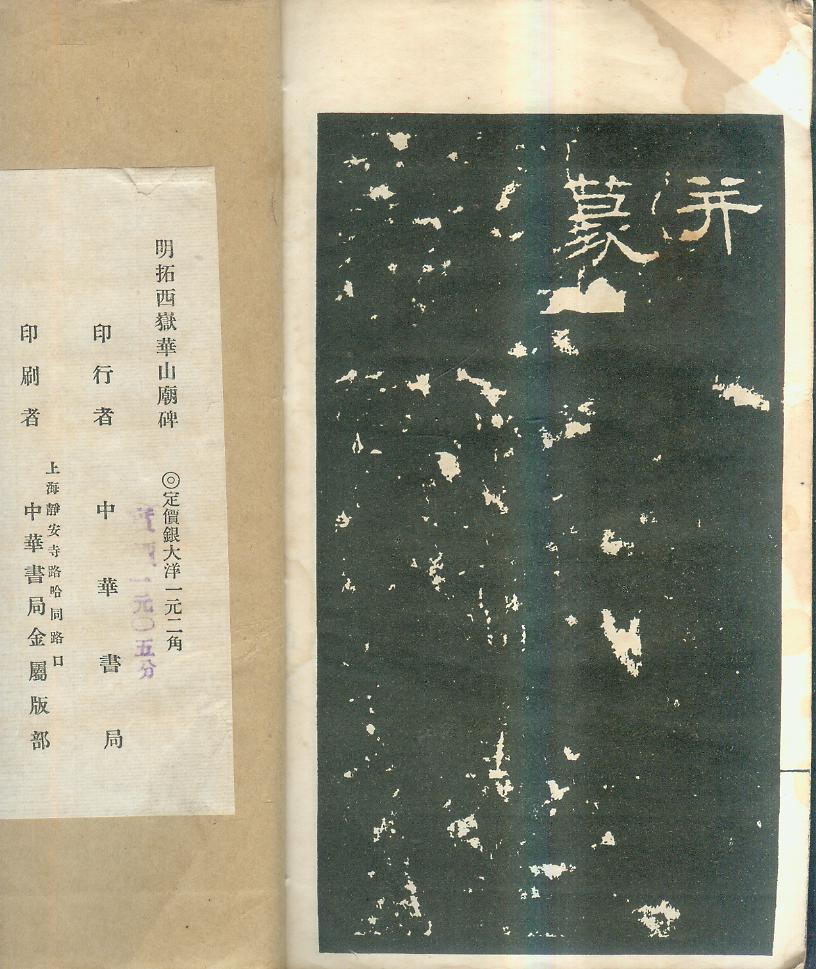 并
篆
明拓西嶽華山廟碑 ◎定價銀大洋一元二角
一元〇五分
印行者 中華書局
印刷者 上海靜安寺路哈同路口
中華書局金屬版部